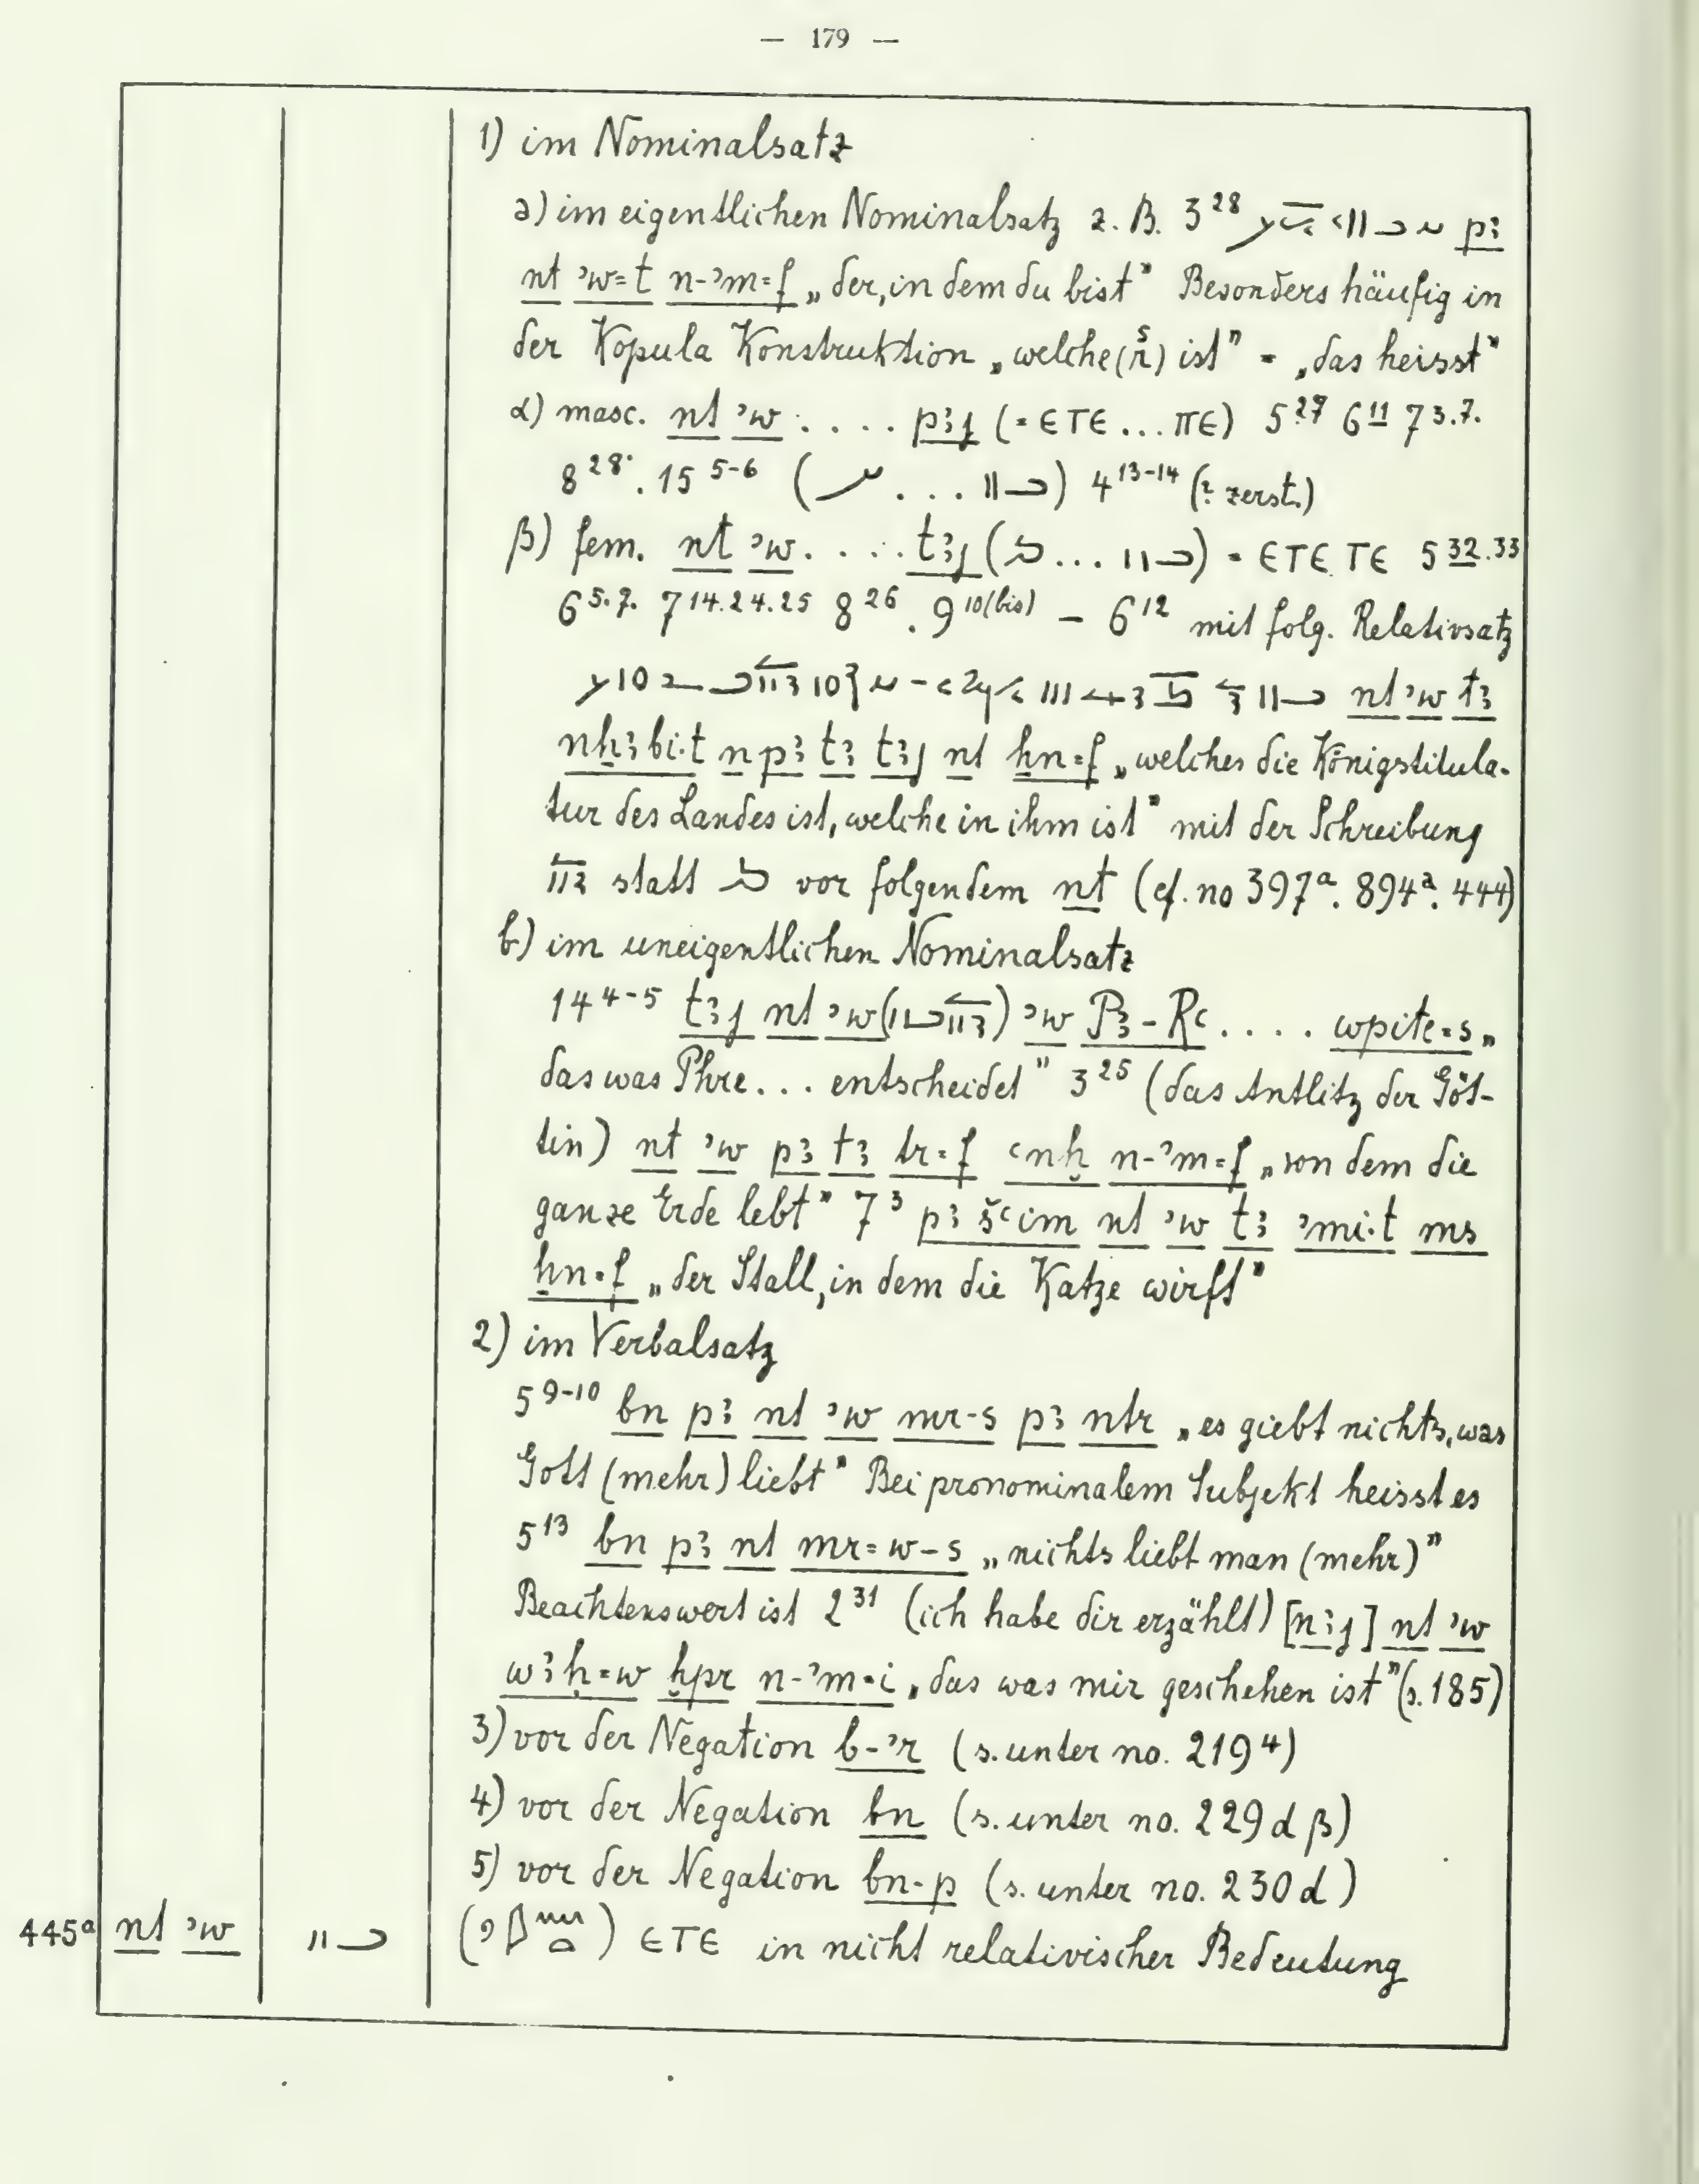 — 179 —
1) im Nominalsatz
a) im eigentlichen Nominalsatz z. B. 3²⁸ pꜣ
nt ʾw=t n-ʾm=f „der, in dem du bist" Besonders häufig in
der Kopula Konstruktion „welche(r̊ˢ) ist" = „das heisst"
α) masc. nt ʾw . . . . pꜣj (= ⲈⲦⲈ ... ⲠⲈ) 5²⁷ 6¹¹ 7³·⁷·
8²⁸· . 15⁵⁻⁶ ( . . . ) 4¹³⁻¹⁴ (? zerst.)
β) fem. nt ʾw . . . . tꜣj ( ... ) = ⲈⲦⲈ ⲦⲈ 5³²·³³
6⁵·⁷· 7¹⁴·²⁴·²⁵ 8²⁶ . 9¹⁰⁽ᵇⁱˢ⁾ – 6¹² mit folg. Relativsatz
nt ʾw tꜣ
nḫꜣbi·t n pꜣ tꜣ tꜣj nt ẖn=f „welches die Königstitula-
tur des Landes ist, welche in ihm ist" mit der Schreibung
statt vor folgendem nt (cf. no 397ᵃ. 894ᵃ. 444)
b) im uneigentlichen Nominalsatz
14⁴⁻⁵ tꜣj nt ʾw ( ) ʾw Pꜣ-Rꜥ . . . . wpite=s „
das was Phre ... entscheidet" 3²⁵ (das Antlitz der Göt-
tin) nt ʾw pꜣ tꜣ tr=f ꜥnḫ n-ʾm=f „von dem die
ganze Erde lebt" 7³ pꜣ šꜥim nt ʾw tꜣ ʾmi·t ms
ẖn=f „der Stall, in dem die Katze wirft"
2) im Verbalsatz
5⁹⁻¹⁰ bn pꜣ nt ʾw mr-s pꜣ ntr „es giebt nichts, was
Gott (mehr) liebt" Bei pronominalem Subjekt heisst es
5¹³ bn pꜣ nt mr=w-s „nichts liebt man (mehr)"
Beachtenswert ist 2³¹ (ich habe dir erzählt) [nꜣj] nt ʾw
wꜣḥ=w ḫpr n-ʾm=i „das was mir geschehen ist" (s. 185)
3) vor der Negation b-ʾr (s. unter no. 219⁴)
4) vor der Negation bn (s. unter no. 229 d β)
5) vor der Negation bn-p (s. unter no. 230 d)
445ᵃ nt ʾw ⲈⲦⲈ in nicht relativischer Bedeutung